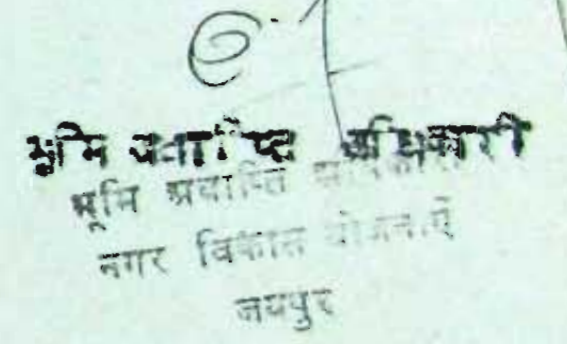 भूमि अवाप्ति अधिकारी
भूमि अवाप्ति अधिकारी
नगर विकास योजनाएँ
जयपुर